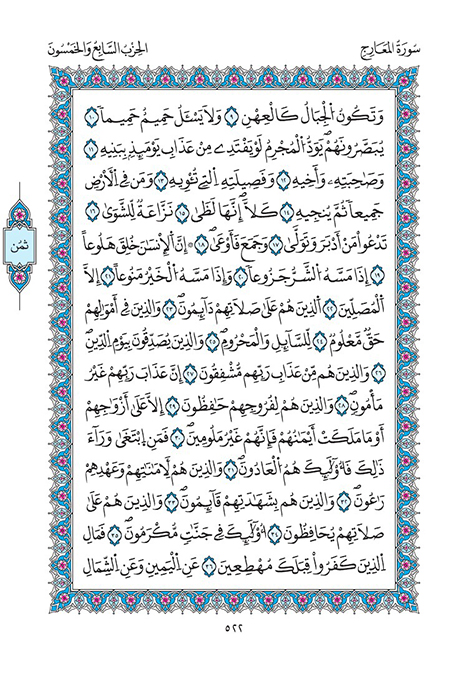 سُورَةُ المَعَارِجِ
الحِزْبُ السَّابِعُ وَالخَمْسُونَ
وَتَكُونُ الْجِبَالُ كَالْعِهْنِ ٩ وَلَا يَسْـَٔلُ حَمِيمٌ حَمِيماً ١٠
يُبَصَّرُونَهُمْ يَوَدُّ الْمُجْرِمُ لَوْ يَفْتَدِے مِنْ عَذَابِ يَوْمَئِذٍ بِبَنِيهِ ١١
وَصَٰحِبَتِهِۦ وَأَخِيهِ ١٢ وَفَصِيلَتِهِ الَّتِے تُـْٔوِيهِ ١٣ وَمَن فِے الْأَرْضِ
جَمِيعاً ثُمَّ يُنجِيهِ ١٤ كَلَّا إِنَّهَا لَظَىٰ ١٥ نَزَّاعَةٌ لِّلشَّوَىٰ ١٦
تَدْعُواْ مَنْ أَدْبَرَ وَتَوَلَّىٰ ١٧ وَجَمَعَ فَأَوْعَىٰ ١٨ ۞ إِنَّ الْإِنسَٰنَ خُلِقَ هَلُوعاً
١٩ إِذَا مَسَّهُ الشَّرُّ جَزُوعاً ٢٠ وَإِذَا مَسَّهُ الْخَيْرُ مَنُوعاً ٢١ إِلَّا
الْمُصَلِّينَ ٢٢ الَّذِينَ هُمْ عَلَىٰ صَلَاتِهِمْ دَآئِمُونَ ٢٣ وَالَّذِينَ فِے أَمْوَٰلِهِمْ
حَقٌّ مَّعْلُومٌ ٢٤ لِّلسَّآئِلِ وَالْمَحْرُومِ ٢٥ وَالَّذِينَ يُصَدِّقُونَ بِيَوْمِ الدِّينِ
٢٦ وَالَّذِينَ هُم مِّنْ عَذَابِ رَبِّهِم مُّشْفِقُونَ ٢٧ إِنَّ عَذَابَ رَبِّهِمْ غَيْرُ
مَأْمُونٍ ٢٨ وَالَّذِينَ هُمْ لِفُرُوجِهِمْ حَٰفِظُونَ ٢٩ إِلَّا عَلَىٰ أَزْوَٰجِهِمْ
أَوْ مَا مَلَكَتْ أَيْمَٰنُهُمْ فَإِنَّهُمْ غَيْرُ مَلُومِينَ ٣٠ فَمَنِ ابْتَغَىٰ وَرَآءَ
ذَٰلِكَ فَأُوْلَٰٓئِكَ هُمُ الْعَادُونَ ٣١ وَالَّذِينَ هُمْ لِأَمَٰنَٰتِهِمْ وَعَهْدِهِمْ
رَٰعُونَ ٣٢ وَالَّذِينَ هُم بِشَهَٰدَتِهِمْ قَآئِمُونَ ٣٣ وَالَّذِينَ هُمْ عَلَىٰ
صَلَاتِهِمْ يُحَافِظُونَ ٣٤ أُوْلَٰٓئِكَ فِے جَنَّٰتٍ مُّكْرَمُونَ ٣٥ فَمَالِ
الَّذِينَ كَفَرُواْ قِبَلَكَ مُهْطِعِينَ ٣٦ عَنِ الْيَمِينِ وَعَنِ الشِّمَالِ
ثُمُن
٥٢٢